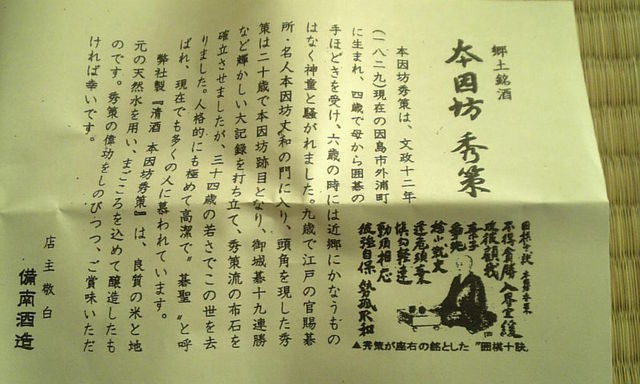 郷土銘酒
本因坊 秀策
本因坊秀策は、文政十二年
(一八二九)現在の因島市外浦町
に生まれ、四歳で母から囲碁の
手ほどきを受け、六歳の時には近郷にかなうもの
はなく神童と騒がれました。九歳で江戸の官賜碁
所・名人本因坊丈和の門に入り、頭角を現した秀
策は二十歳で本因坊跡目となり、御城碁十九連勝
など輝かしい大記録を打ち立て、秀策流の布石を
確立させましたが、三十四歳の若さでこの世を去
りました。人格的にも極めて高潔で〝碁聖〟と呼
ばれ、現在でも多くの人に慕われています。
弊社製『清酒 本因坊秀策』は、良質の米と地
元の天然水を用い、まごころを込めて醸造したも
のです。秀策の偉功をしのびつつ、ご賞味いただ
ければ幸いです。
店主敬白
備南酒造
不得貪勝 入界宜緩
攻彼顧我
棄子
争先
捨小就大
逢危須棄
慎勿軽速
動須相応
彼強自保 勢孤取和
▲秀策が座右の銘とした〝囲棋十訣〟